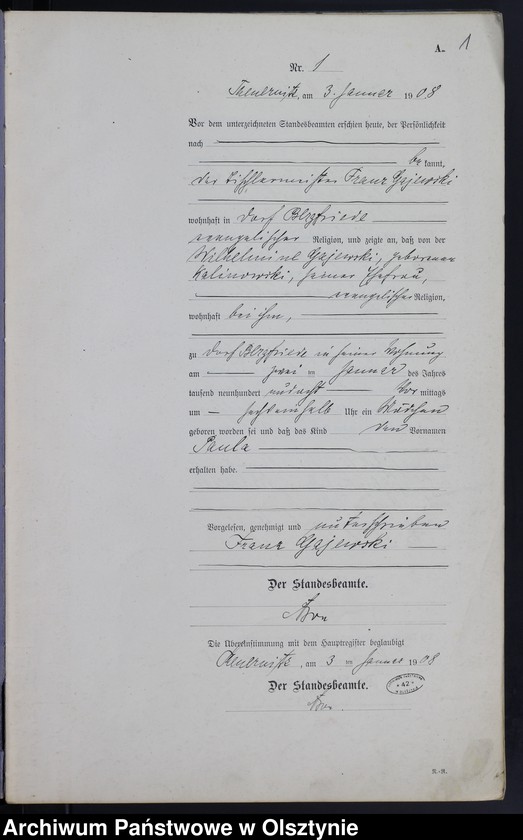 A. 1
Nr. 1
am 3. Januar 1908
Vor dem unterzeichneten Standesbeamten erschien heute, der Persönlichkeit
nach
be kannt,
der Tischlermeister Franz Gajewski
wohnhaft in Dorf
evangelischer Religion, und zeigte an, daß von der
Wilhelmine Gajewski, geborenen
Kalinowski, seiner Ehefrau,
evangelischer Religion,
wohnhaft bei ihm,
zu Dorf in seiner Wohnung
am zwei ten Januar des Jahres
tausend neunhundert und acht Vor mittags
um Uhr ein Mädchen
geboren worden sei und daß das Kind den Vornamen
Paula
erhalten habe.
Vorgelesen, genehmigt und unterschrieben
Franz Gajewski
Der Standesbeamte.
Die Übereinstimmung mit dem Hauptregister beglaubigt
am 3 ten Januar 1908
Der Standesbeamte.
42
R.-R.
Archiwum Państwowe w Olsztynie